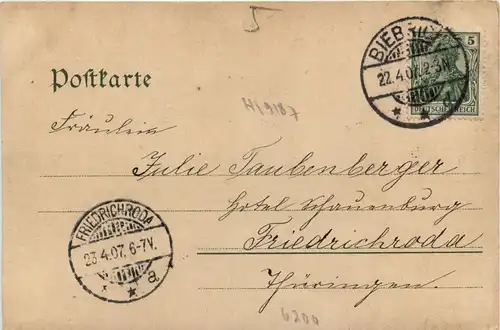 J
BIEB
22.4.07. 2-3N
5
DEUTSCHES REICH
Postkarte
H19187
Fräulein
Julie Taubenberger
Hotel Schauenburg
Friedrichroda
Thüringen.
FRIEDRICHRODA
23.4.07. 6-7V.
a
6200